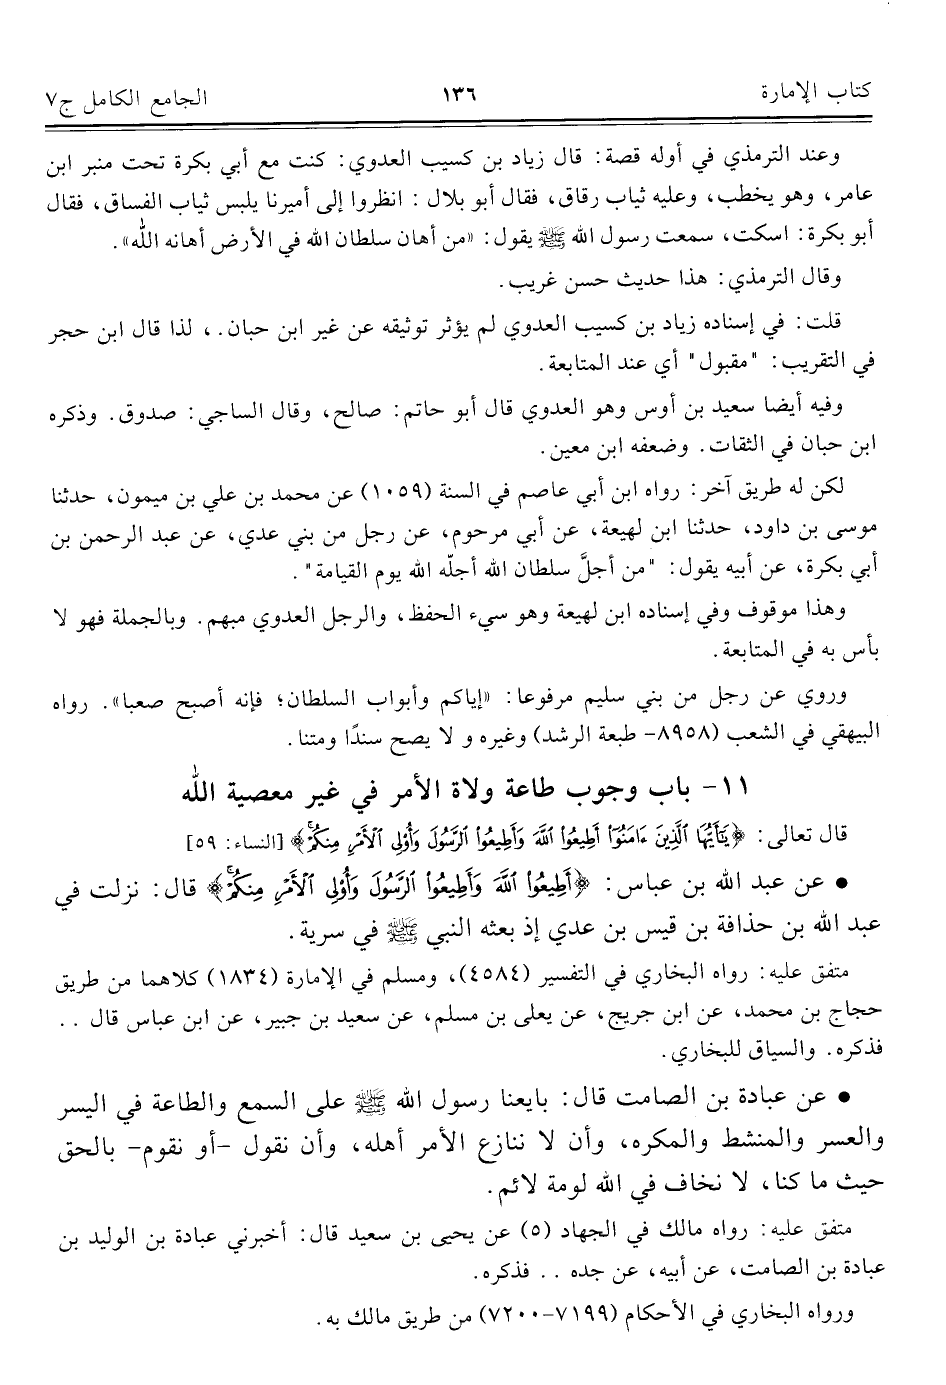 كتاب الإمارة ١٣٦ الجامع الكامل ج٧
وعند الترمذي في أوله قصة: قال زياد بن كسيب العدوي: كنت مع أبي بكرة تحت منبر ابن
عامر، وهو يخطب، وعليه ثياب رقاق، فقال أبو بلال: انظروا إلى أميرنا يلبس ثياب الفساق، فقال
أبو بكرة: اسكت، سمعت رسول الله ﷺ يقول: «من أهان سلطان الله في الأرض أهانه الله».
وقال الترمذي: هذا حديث حسن غريب.
قلت: في إسناده زياد بن كسيب العدوي لم يؤثر توثيقه عن غير ابن حبان.، لذا قال ابن حجر
في التقريب: "مقبول" أي عند المتابعة.
وفيه أيضا سعيد بن أوس وهو العدوي قال أبو حاتم: صالح، وقال الساجي: صدوق. وذكره
ابن حبان في الثقات. وضعفه ابن معين.
لكن له طريق آخر: رواه ابن أبي عاصم في السنة (١٠٥٩) عن محمد بن علي بن ميمون، حدثنا
موسى بن داود، حدثنا ابن لهيعة، عن أبي مرحوم، عن رجل من بني عدي، عن عبد الرحمن بن
أبي بكرة، عن أبيه يقول: "من أجلَّ سلطان الله أجلّه الله يوم القيامة".
وهذا موقوف وفي إسناده ابن لهيعة وهو سيء الحفظ، والرجل العدوي مبهم. وبالجملة فهو لا
بأس به في المتابعة.
وروي عن رجل من بني سليم مرفوعا: «إياكم وأبواب السلطان؛ فإنه أصبح صعبا». رواه
البيهقي في الشعب (٨٩٥٨- طبعة الرشد) وغيره و لا يصح سندًا ومتنا.
١١- باب وجوب طاعة ولاة الأمر في غير معصية الله
قال تعالى: ﴿يَٰٓأَيُّهَا ٱلَّذِينَ ءَامَنُوٓا۟ أَطِيعُوا۟ ٱللَّهَ وَأَطِيعُوا۟ ٱلرَّسُولَ وَأُو۟لِى ٱلْأَمْرِ مِنكُمْۖ﴾ [النساء: ٥٩]
• عن عبد الله بن عباس: ﴿أَطِيعُوا۟ ٱللَّهَ وَأَطِيعُوا۟ ٱلرَّسُولَ وَأُو۟لِى ٱلْأَمْرِ مِنكُمْۖ﴾ قال: نزلت في
عبد الله بن حذافة بن قيس بن عدي إذ بعثه النبي ﷺ في سرية.
متفق عليه: رواه البخاري في التفسير (٤٥٨٤)، ومسلم في الإمارة (١٨٣٤) كلاهما من طريق
حجاج بن محمد، عن ابن جريج، عن يعلى بن مسلم، عن سعيد بن جبير، عن ابن عباس قال ..
فذكره. والسياق للبخاري.
• عن عبادة بن الصامت قال: بايعنا رسول الله ﷺ على السمع والطاعة في اليسر
والعسر والمنشط والمكره، وأن لا ننازع الأمر أهله، وأن نقول -أو نقوم- بالحق
حيث ما كنا، لا نخاف في الله لومة لائم.
متفق عليه: رواه مالك في الجهاد (٥) عن يحيى بن سعيد قال: أخبرني عبادة بن الوليد بن
عبادة بن الصامت، عن أبيه، عن جده .. فذكره.
ورواه البخاري في الأحكام (٧١٩٩-٧٢٠٠) من طريق مالك به.